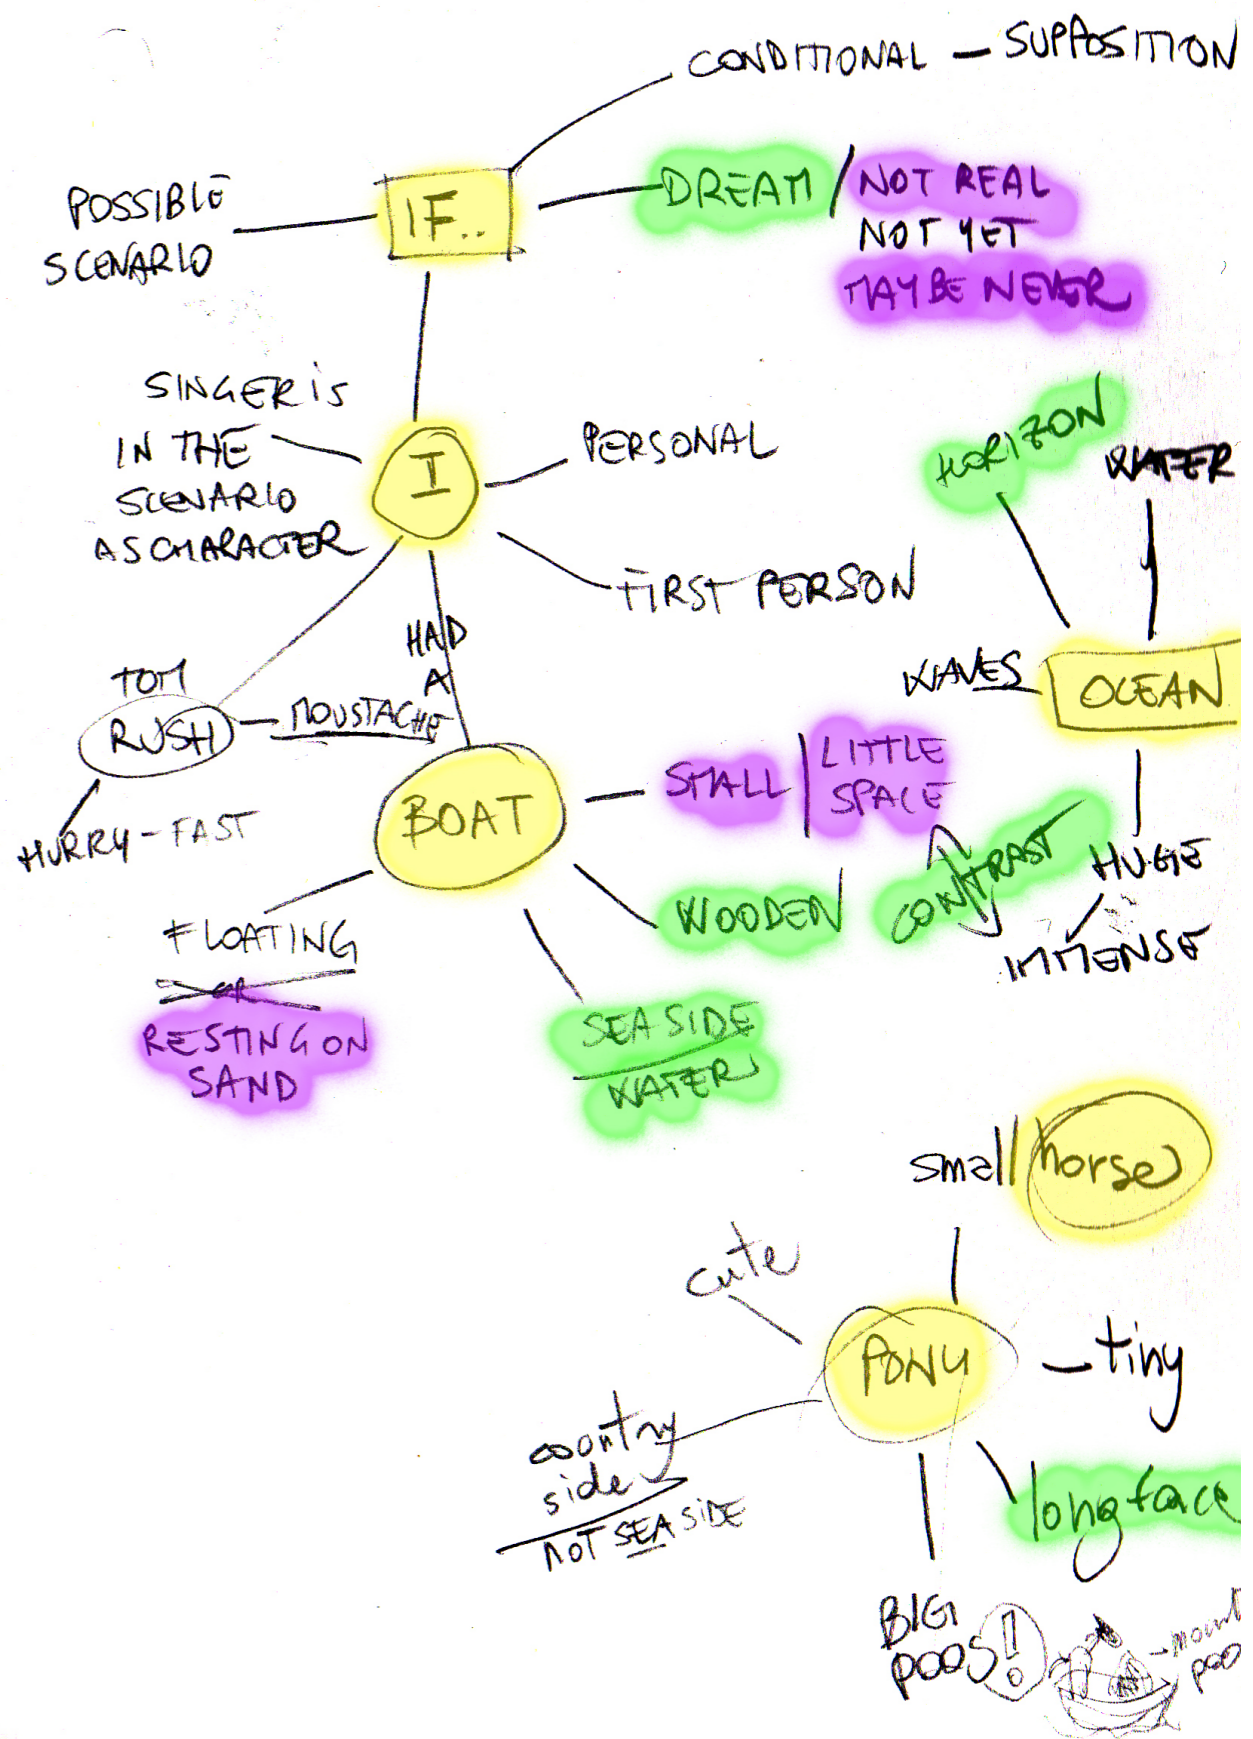 CONDITIONAL — SUPPOSITION
POSSIBLE
SCENARIO
IF..
DREAM / NOT REAL
NOT YET
MAYBE NEVER
SINGER IS
IN THE
SCENARIO
AS CHARACTER
I
PERSONAL
FIRST PERSON
HORIZON
WATER
WAVES
OCEAN
HAD
A
TOM
RUSH
MOUSTACHE
HURRY - FAST
BOAT
SMALL | LITTLE
SPACE
CONTRAST
HUGE
IMMENSE
WOODEN
FLOATING
OR
RESTING ON
SAND
SEA SIDE
WATER
small horse
cute
PONY
- tiny
country
side
NOT SEA SIDE
long face
BIG
POOS !